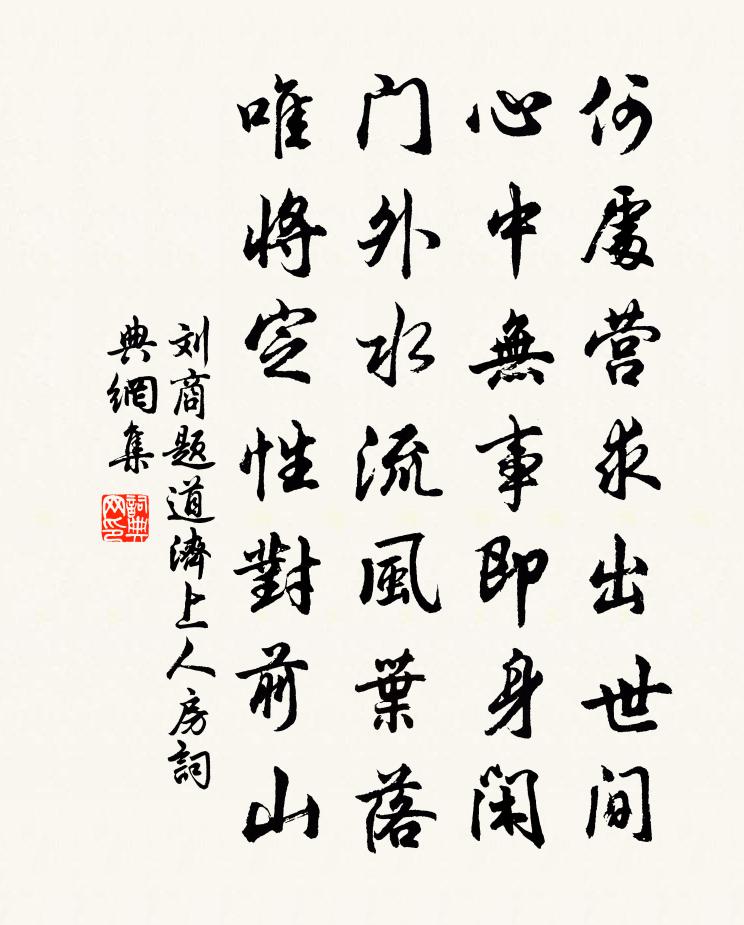 何處营求出世间
心中無事即身闲
门外水流風葉落
唯將定性對前山
刘商题道濟上人房詞
典網集
詞典
网印